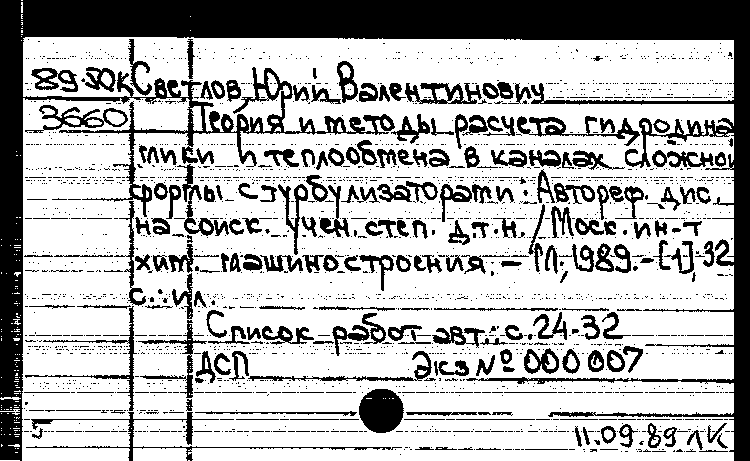 89-50К Светлов, Юрий Валентинович
3660 Теория и методы расчета гидродина
мики и теплообмена в каналах сложной
формы с турбулизаторами: Автореф. дис.
на соиск. учен. степ. д.т.н. / Моск. ин-т
хим. машиностроения. - М., 1989. - [1], 32
с.: ил.
Список работ авт.: с. 24-32
ДСП Экз № 000 007
5
11.09.89 ЛК